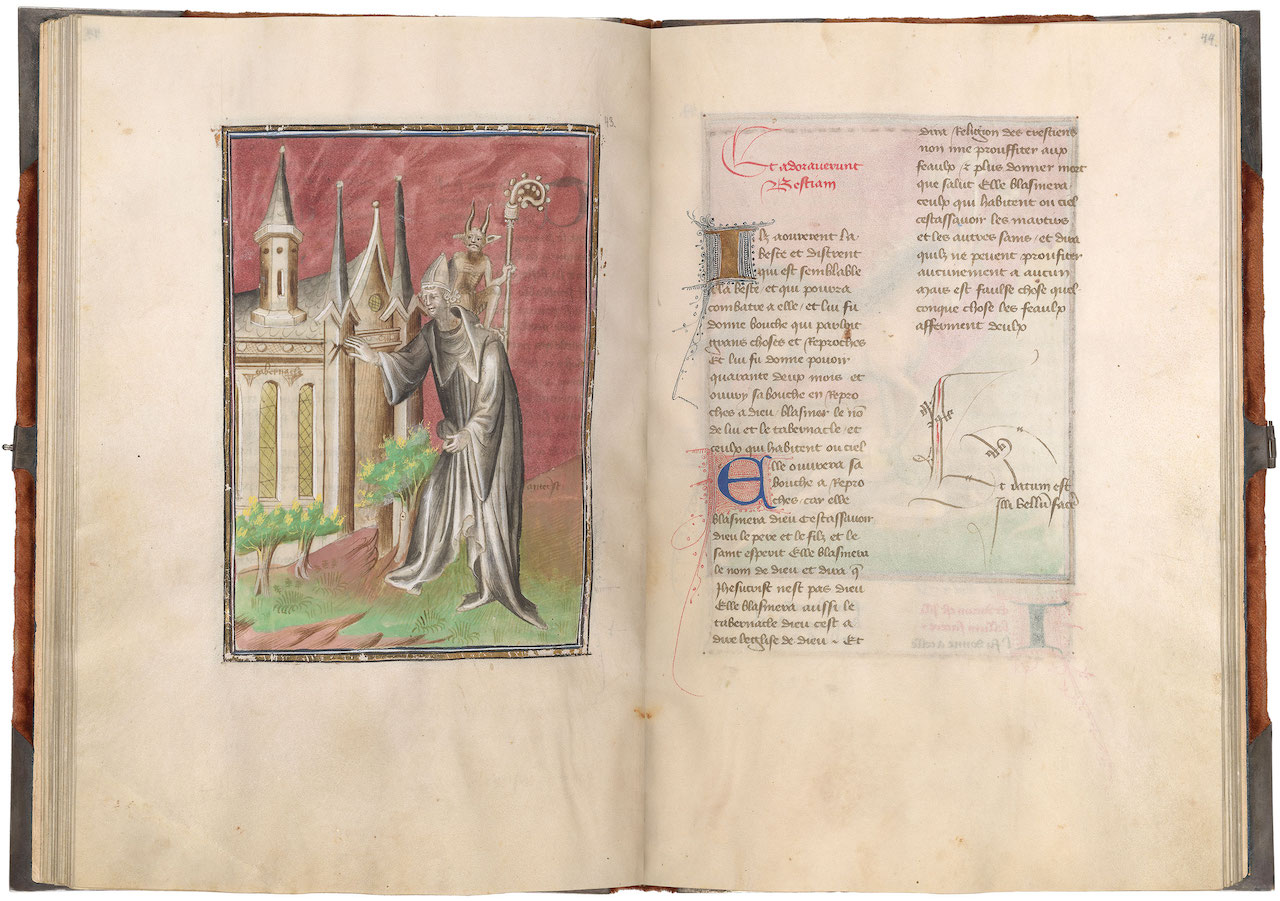 43.
tabernacle
antecrist
44.
Et adoraverunt
Bestiam
Ilz aouverent la
beste et distrent
qui est semblable
a la beste et qui pourra
combatre a elle / et lui fu
donne bouche qui parloit
grans choses et Reproches
Et lui fu donne pouoir
quarante deux mois et
ouvry sa bouche en Repro
ches a dieu blasmer le nõ
de lui et le tabernacle / et
ceulx qui habitent ou ciel
Elle ouvrera sa
bouche a Repro
ches / car elle
blasmera dieu Cestassavoir
dieu le pere et le filz et le
saint esperit Elle blasmera
le nom de dieu et dira q̃
Jhesucrist nest pas dieu
Elle blasmera aussi le
tabernacle dieu cest a
dire leglise de dieu ~ Et
dira Religion des crestiens
non mie prouffiter aux
feaulx / et plus donner mort
que salut Elle blasmera
ceulx qui habitent ou ciel
cestassavoir les martirs
et les autres sains / et dira
quilz ne peuent proufiter
aucunement a aucun
Mais est faulse chose quel
conque chose les feaulx
afferment deulx
Et datum est
illi Bellũ face